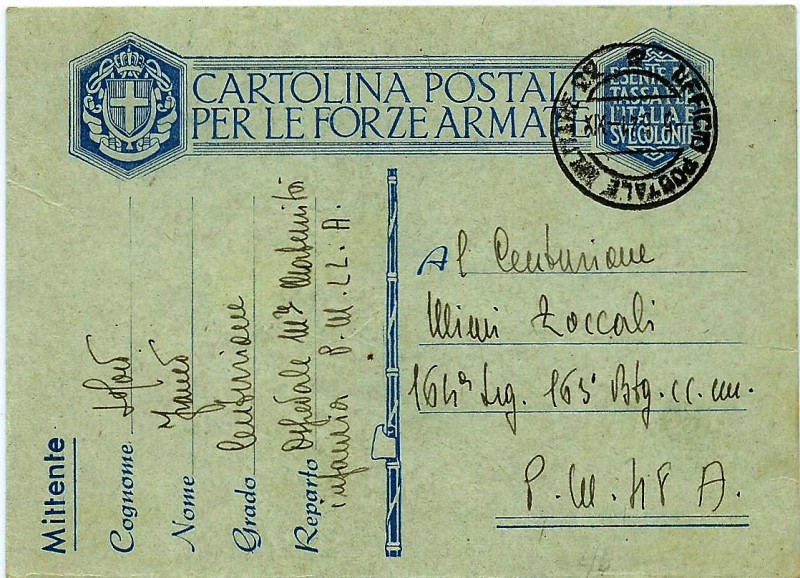 CARTOLINA POSTAL
PER LE FORZE ARMAT
ESENTE
TASSA PE
ITALIA
SUE COLONIE
UFFICIO POSTALE MILITARE
Al Centurione
Mimi Zoccali
164a Leg. 163° Btg. cc. nn.
P. M. 48 A.
Mittente
Cognome
Nome Franco
Grado Centurione
Reparto Ospedale Mre Maternità
infanzia P. M. LL. A.